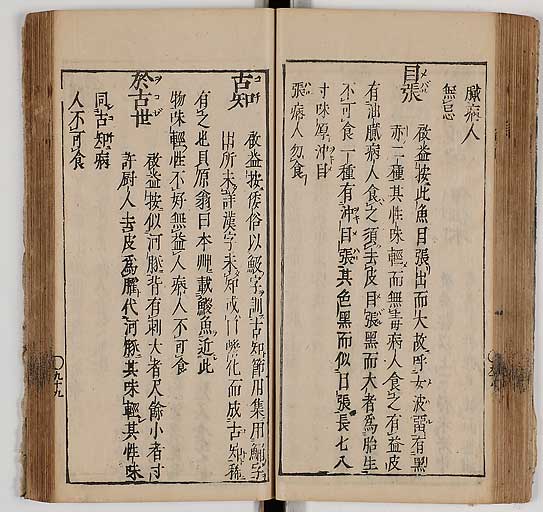 臓病人
無忌
目張 メバル
啟益按此魚目張出而大故呼女波留有黒
赤二種其性味軽而無毒病人食之有益皮
有油膩病人食之須去皮目張黒而大者為胎生
不可食一種有沖目張其色黒而似目張長七八
寸味厚沖目
張病人勿食
古知 コチ
啟益按俗以鮲字訓古知節用集用鮲字
出所未詳漢字未知或云
化而成古知稀
有之也貝原翁曰日本州載鯼魚近此
物味軽性不好無益人病人不可食
於古世 ヲコゼ
啟益按似河豚背有刺大者尺余小者寸
許厨人去皮為臛代河豚其味軽其性味
同古知病
人不可食
〇九十九